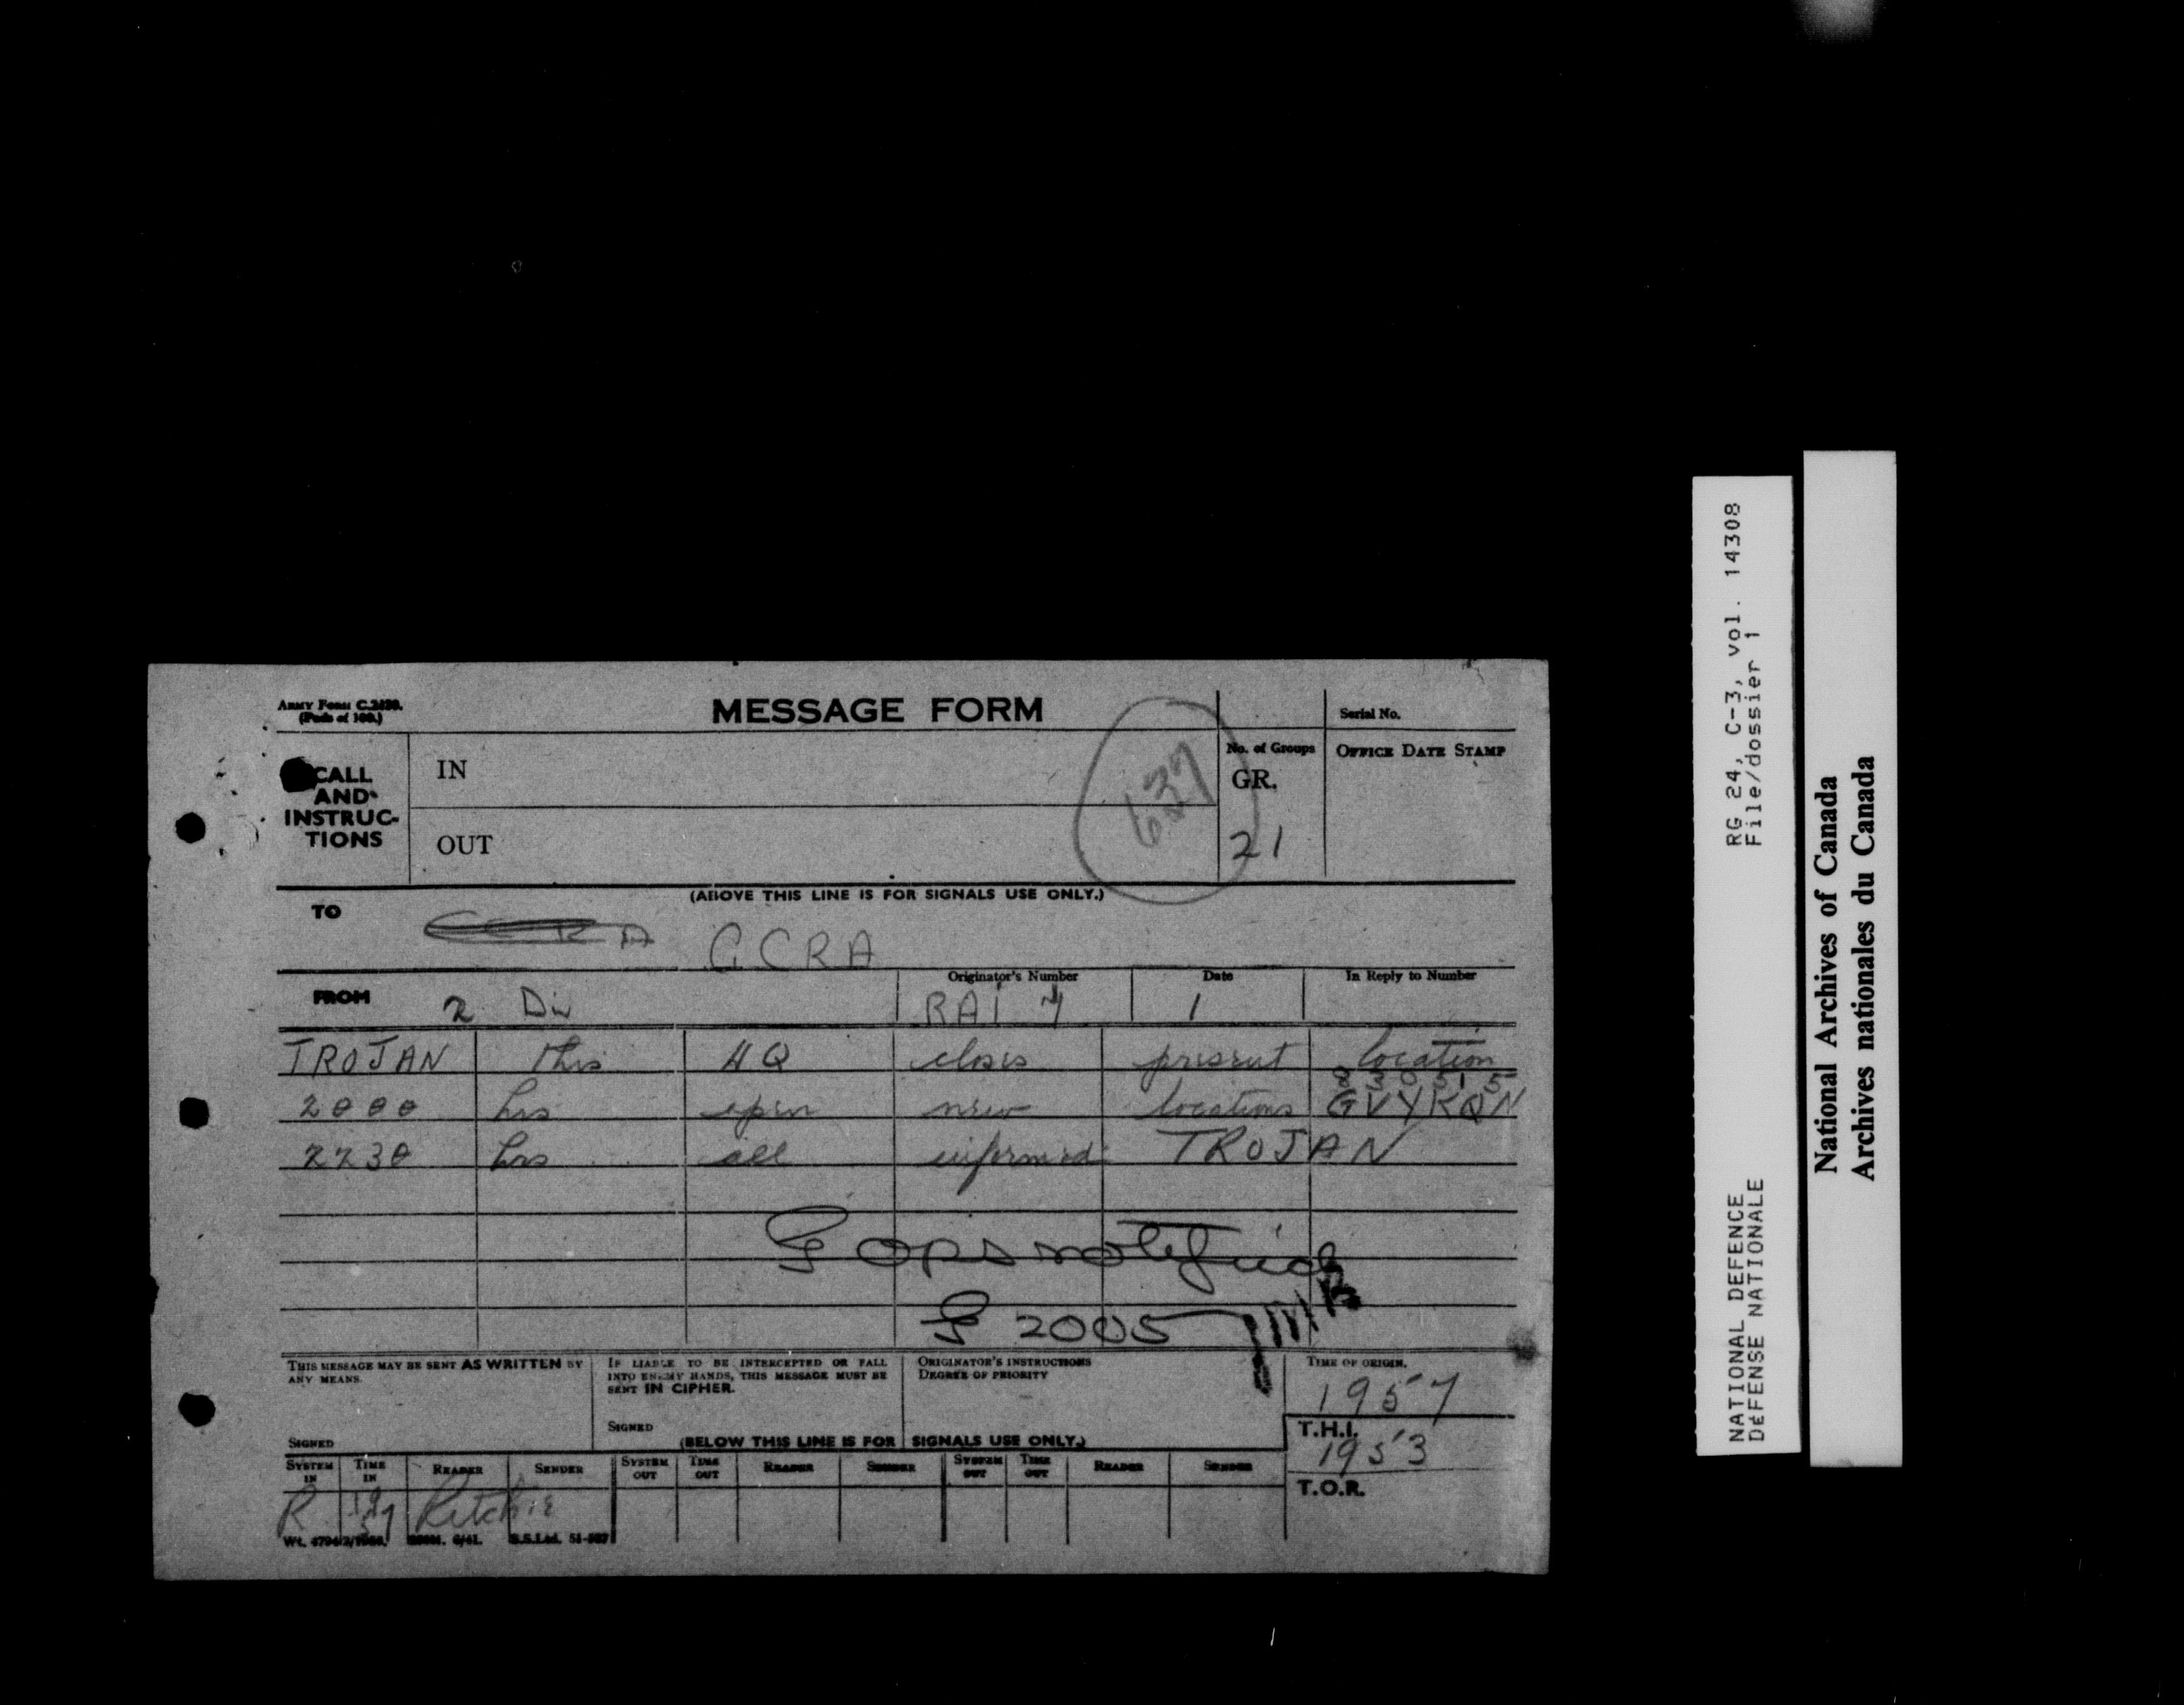 ARMY FORM C.2128.
(Pads of 100.)
MESSAGE FORM
Serial No.
CALL AND INSTRUC-TIONS
IN
OUT
637
No. of Groups
GR.
21
OFFICE DATE STAMP
(ABOVE THIS LINE IS FOR SIGNALS USE ONLY.)
TO
CCRA
FROM 2 Div
Originator's Number
RAI 7
Date
1
In Reply to Number
TROJAN this HQ closes present location
830515
2000 hrs open new locations GVYKQN
2230 hrs all informed TROJAN
G ops notified
G 2005
THIS MESSAGE MAY BE SENT AS WRITTEN BY ANY MEANS.
SIGNED
IF LIABLE TO BE INTERCEPTED OR FALL INTO ENEMY HANDS, THIS MESSAGE MUST BE SENT IN CIPHER.
SIGNED
ORIGINATOR'S INSTRUCTIONS
DEGREE OF PRIORITY
TIME OF ORIGIN.
1957
T.H.I.
1953
T.O.R.
(BELOW THIS LINE IS FOR SIGNALS USE ONLY.)
SYSTEM IN TIME IN READER SENDER SYSTEM OUT TIME OUT READER SENDER SYSTEM OUT TIME OUT READER SENDER
R 1957 Ritchie
NATIONAL DEFENCE RG 24, C-3, vol. 14308
DéFENSE NATIONALE File/dossier 1
National Archives of Canada
Archives nationales du Canada